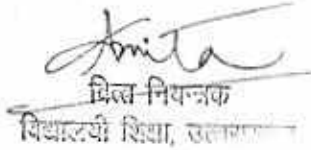 Anita
वित्त नियन्त्रक
विद्यालयी शिक्षा,